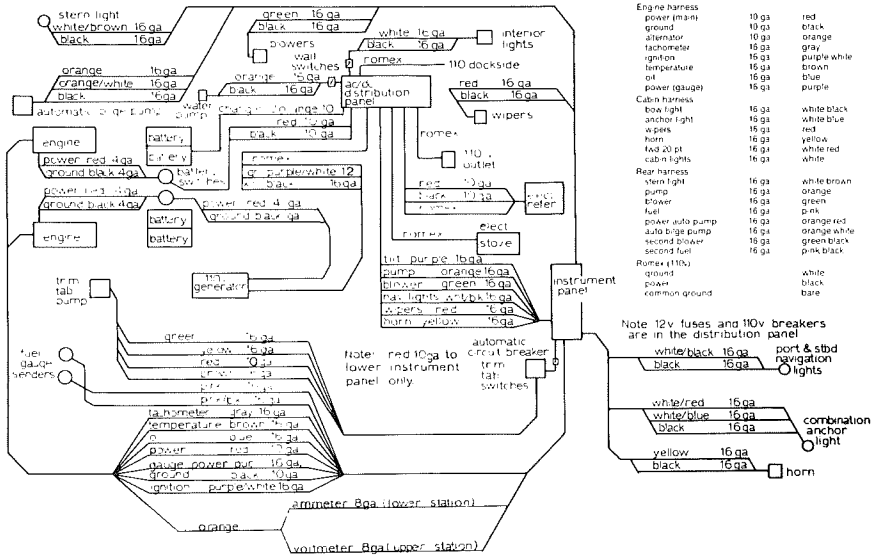 stern light
white/brown 16 ga
black 16 ga
green 16 ga
black 16 ga
blowers
white 16 ga
black 16 ga
interior
lights
wall
switches
romex
110 dockside
orange 16 ga
orange/white 16 ga
black 16 ga
automatic bilge pump
orange 16 ga
black 16 ga
water
pump
ac/dc
distribution
panel
red 16 ga
black 16 ga
wipers
red 10 ga
black 10 ga
engine
battery
battery
power red 4 ga
ground black 4 ga
battery
switches
romex
purple/white 12
black 16 ga
romex
110 v
outlet
power red 4 ga
ground black 4 ga
power red 4 ga
ground black ga
red 10 ga
black 10 ga
romex
elect
refer
engine
battery
battery
romex
elect
stove
110
generator
trim
tab
pump
tilt purple 16 ga
pump orange 16 ga
blower green 16 ga
nav lights wht/bk 16 ga
wipers red 16 ga
horn yellow 16 ga
instrument
panel
green 16 ga
red 10 ga
fuel
gauge
senders
Note: red 10 ga to
lower instrument
panel only.
automatic
circuit breaker
trim
tab
switches
tachometer gray 16 ga
temperature brown 16 ga
oil blue 16 ga
power red
gauge power pur. 16 ga
ground black 10 ga
ignition purple/white 16 ga
orange
ammeter 8 ga (lower station)
voltmeter 8 ga (upper station)
Engine harness
power (main) 10 ga red
ground 10 ga black
alternator 10 ga orange
tachometer 16 ga gray
ignition 16 ga purple white
temperature 16 ga brown
oil 16 ga blue
power (gauge) 16 ga purple
Cabin harness
bow light 16 ga white black
anchor light 16 ga white blue
wipers 16 ga red
horn 16 ga yellow
fwd 20 pt 16 ga white red
cabin lights 16 ga white
Rear harness
stern light 16 ga white brown
pump 16 ga orange
blower 16 ga green
fuel 16 ga pink
power auto pump 16 ga orange red
auto bilge pump 16 ga orange white
second blower 16 ga green black
second fuel 16 ga pink black
Romex (110v)
ground white
power black
common ground bare
Note 12v fuses and 110v breakers
are in the distribution panel
white/black 16 ga
black 16 ga
port & stbd
navigation
lights
white/red 16 ga
white/blue 16 ga
black 16 ga
combination
anchor
light
yellow 16 ga
black 16 ga
horn